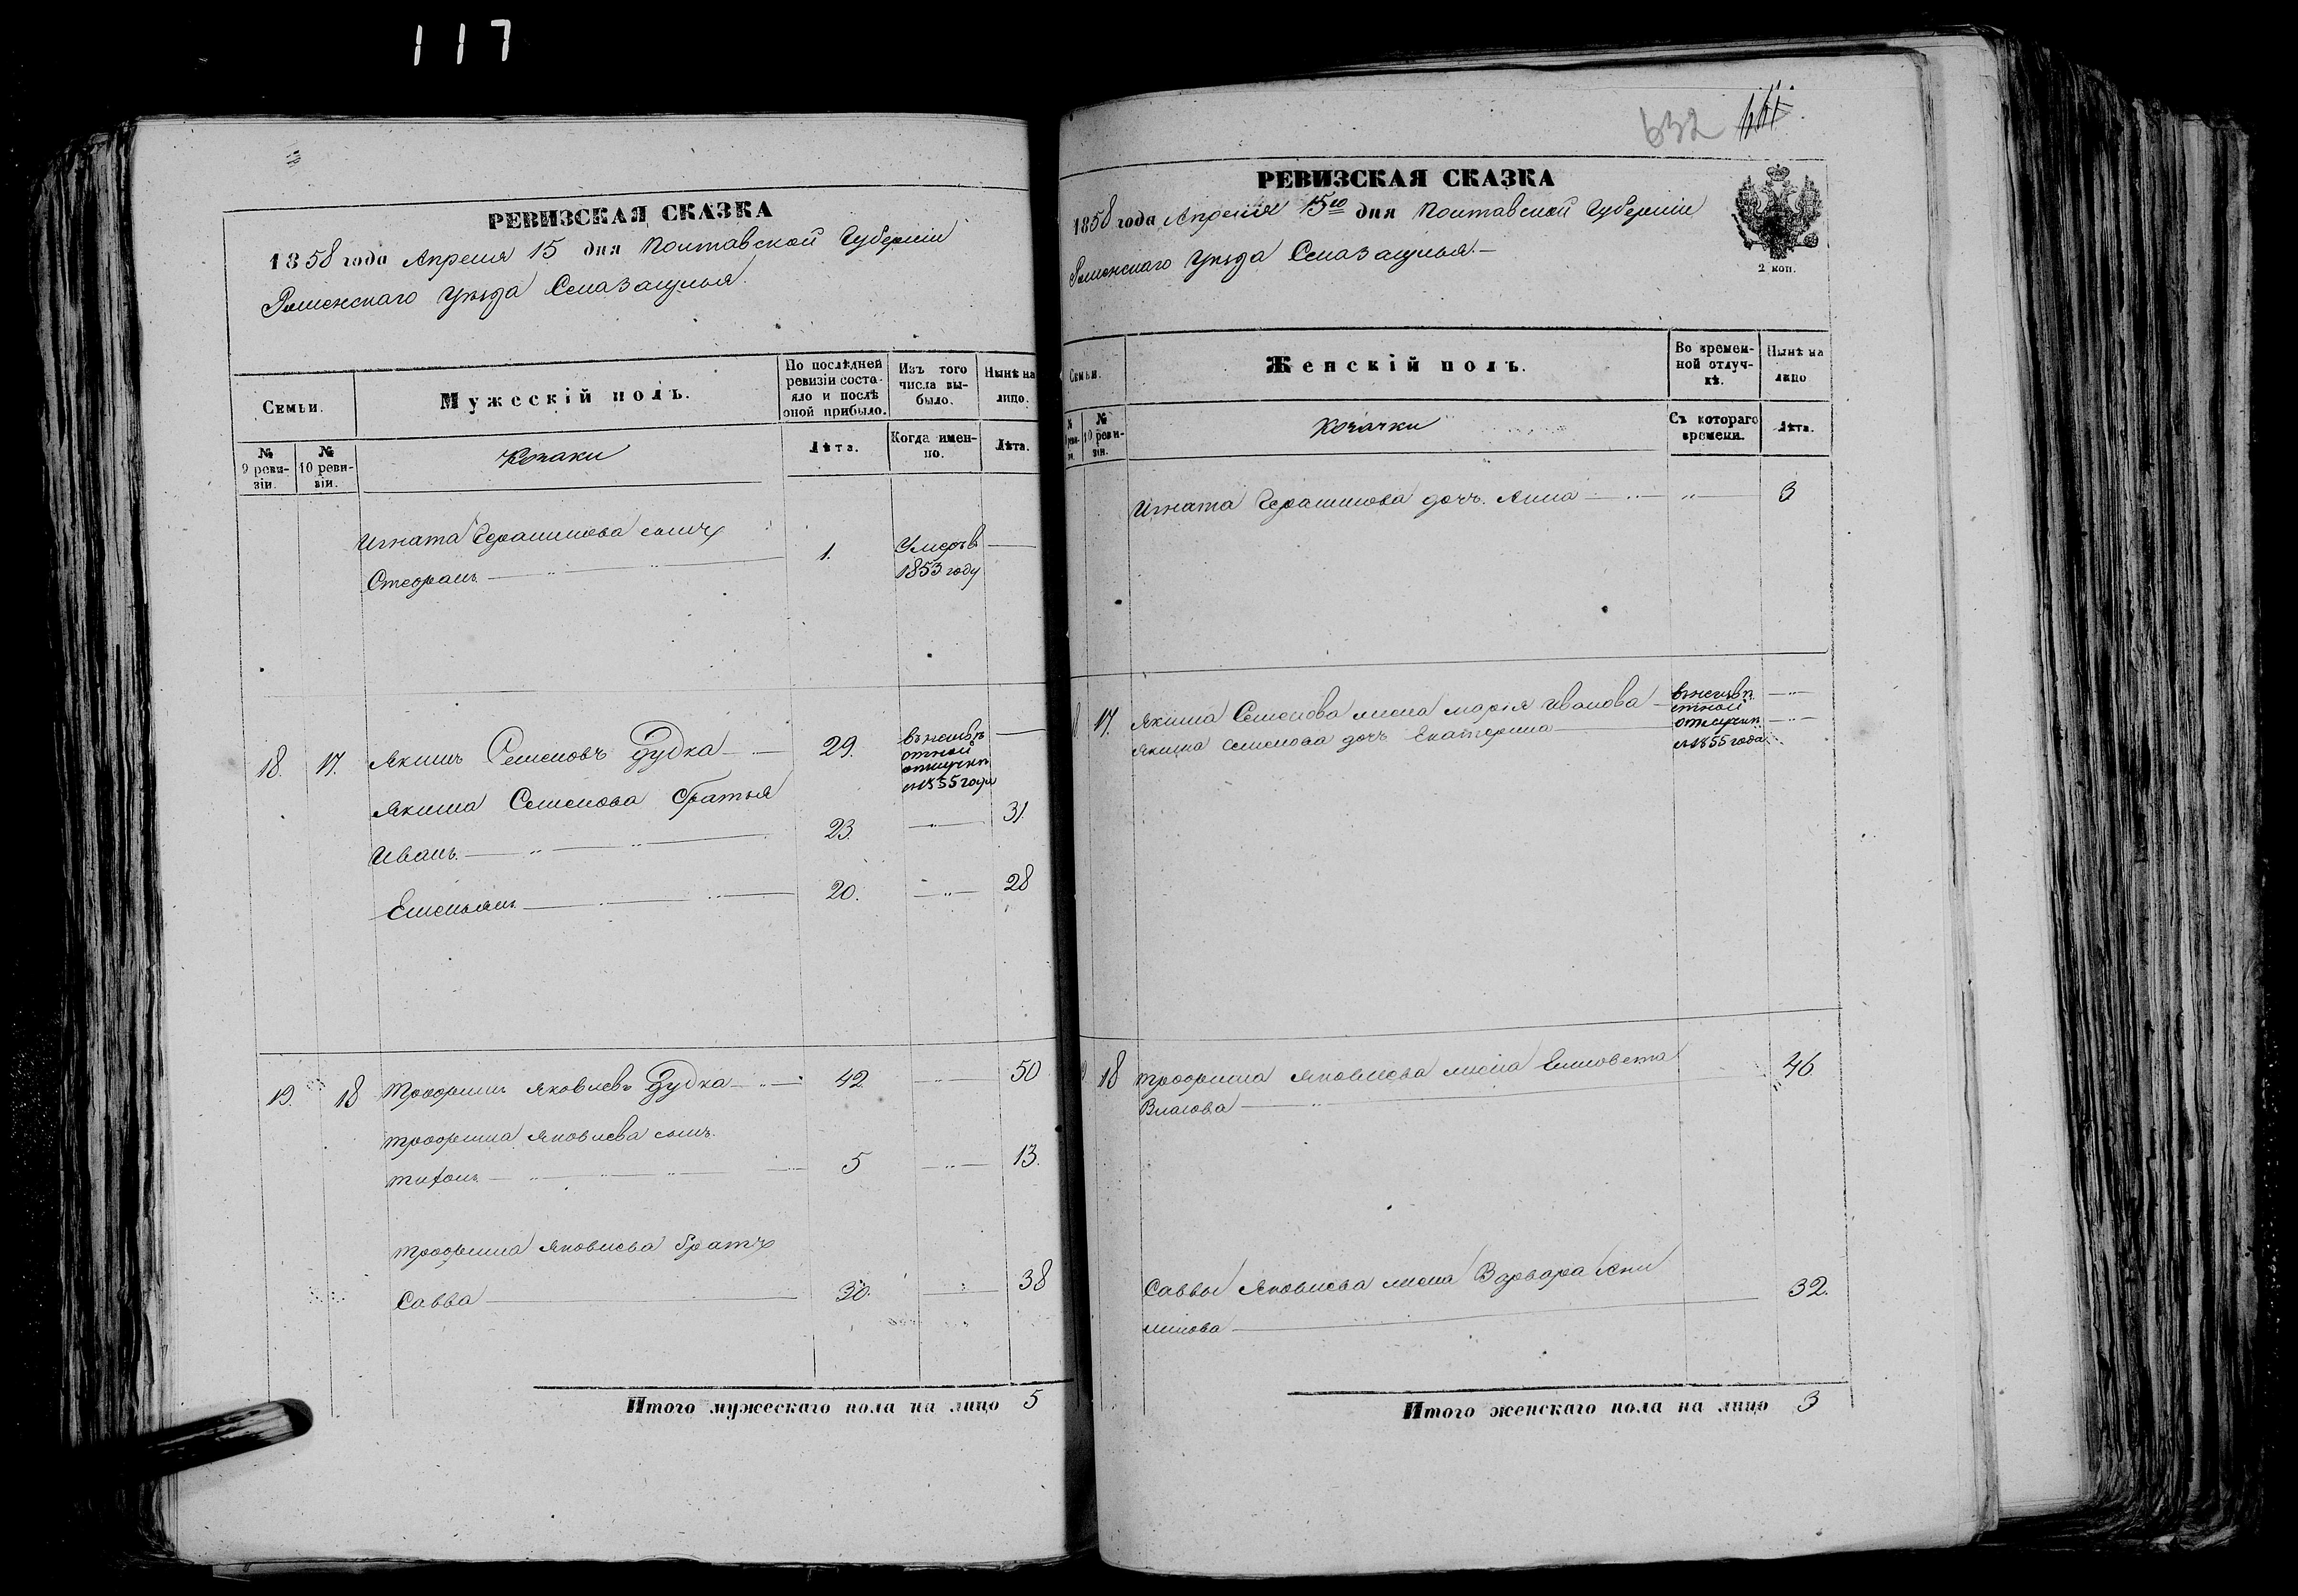 117
РЕВИЗСКАЯ СКАЗКА
1858 года Апреля 15 дня Полтавской Губерніи
Роменскаго Уѣзда
Семьи.
Мужескій полъ.
По послѣдней ревизіи состояло и послѣ оной прибыло.
Изъ того числа выбыло.
Нынѣ на лицо.
№ 9 ревизіи.
№ 10 ревизіи.
Козаки
Лѣта.
Когда именно.
Лѣта.
Игната Герасимова сынъ
Стефанъ 1. Умеръ в 1853 году
18. 17. Якимъ Семеновъ Дудка 29. отлучкѣ 1855 года
Якима Семенова братья
Иванъ 23. 31.
Емельянъ 20. 28
19. 18 Трофимъ Яковлевъ Дудка 42 50
Трофима Яковлева сынъ
Тихонъ 5 13.
Трофима Яковлева братъ
Савва 30. 38
Итого мужескаго пола на лицо 5
632
РЕВИЗСКАЯ СКАЗКА
1858 года Апреля 15го дня Полтавской Губерніи
Роменскаго Уѣзда
2 коп.
Семьи.
Женскій полъ.
Во временной отлучкѣ.
Нынѣ на лицо
№ 10 ревизіи.
Козачки
Съ котораго времени.
Лѣта.
Игната Герасимова дочь Анна 3
17. Якима Семенова жена Марія Иванова
Якима Семенова дочь Екатерина отлучкѣ 1855 года
18 Трофима Яковлева жена Елисовета 46.
Власова
Саввы Яковлева жена Варвара Яки
мова 32.
Итого женскаго пола на лицо 3